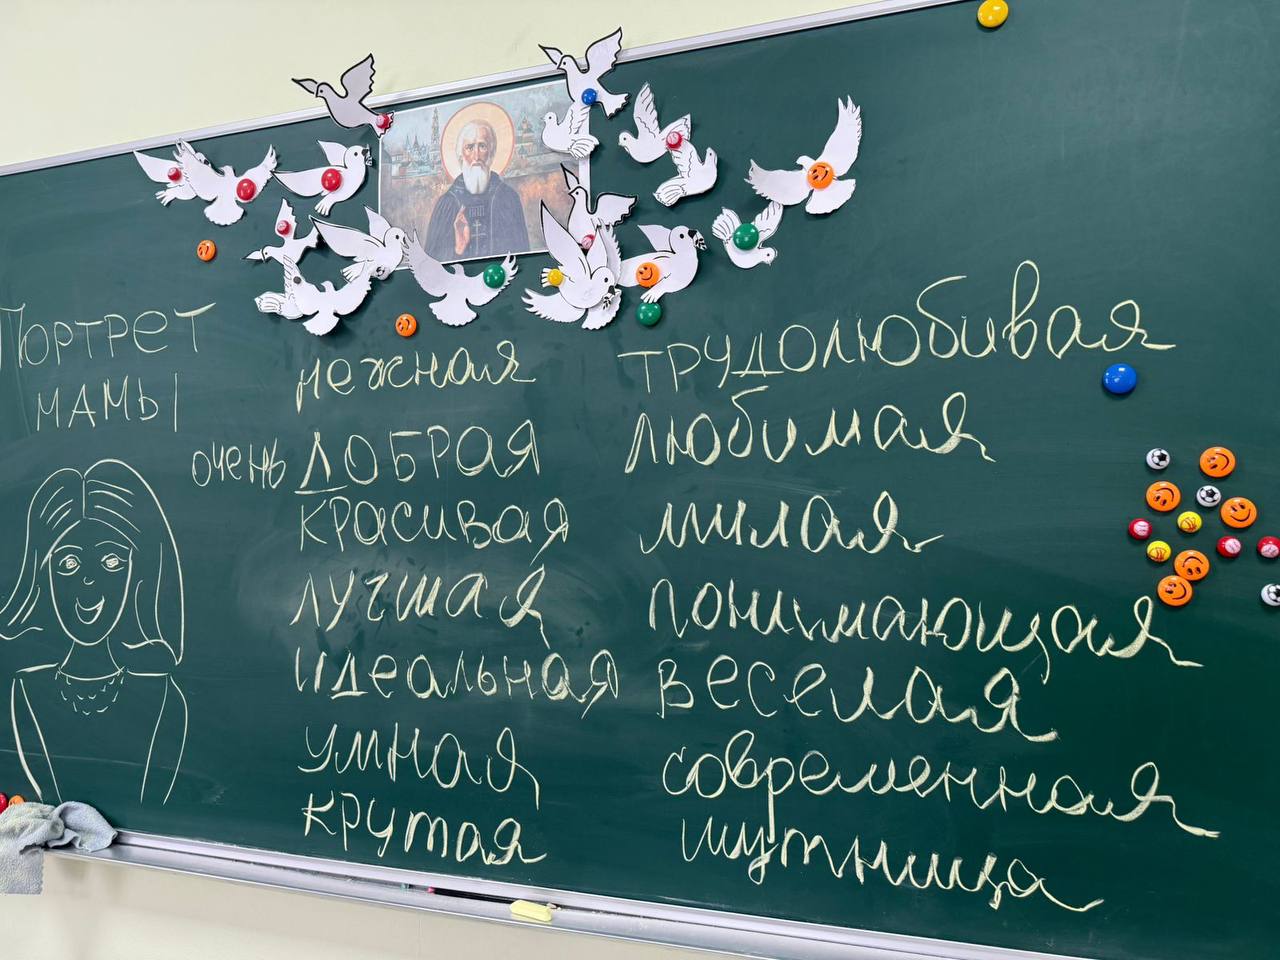 Портрет
мамы
нежная
очень добрая
красивая
лучшая
идеальная
умная
крутая
трудолюбивая
любимая
милая
понимающая
веселая
современная
шутница